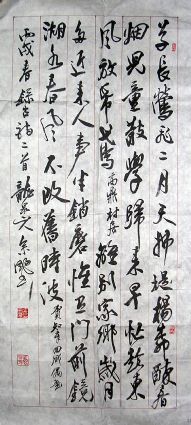 草長鶯飛二月天拂堤楊柳醉春
烟兒童散學歸來早忙趁東
風放紙鳶高鼎村居離別家鄉歲月
多近來人事半銷磨惟有門前鏡
湖水春風不改舊時波賀知章回鄉偶書
丙戌春錄古詩二首